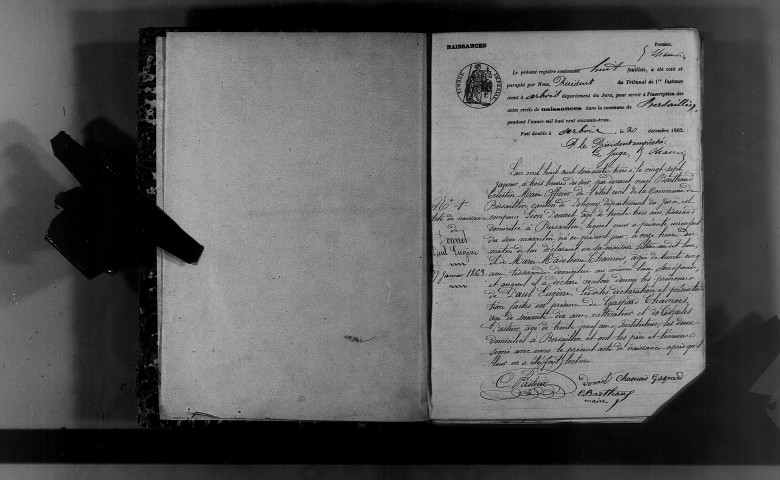 NAISSANCES
Premier.
Le présent registre contenant huit feuillets, a été coté et
paraphé par Nous, Président du Tribunal de 1re Instance
séant à Arbois département du Jura, pour servir à l'inscription des
actes civils de naissances dans la commune de Bersaillin,
pendant l'année mil huit cent soixante-trois.
Fait double à Arbois, le 20 décembre 1862.
P. le Président empêché
Le Juge,
TIMBRE IMPÉRIAL
N° 1
Acte de naissance
de
Donnet
Paul Eugène
27 janvier 1863
L'an mil huit cent soixante trois le vingt sept
janvier, à trois heures du soir, par devant nous Barthaud
Célestin Marie officier de l'état civil de la Commune de
Bersaillin, canton de Poligny, département du Jura, est
comparu Léon Donnet, âgé de trente trois ans, tisserand
domicilié à Bersaillin, lequel nous a présenté un enfant
du sexe masculin, né ce présent jour, à onze heures du
matin de lui déclarant en sa maison située audit lieu,
et de Marie Madeleine Chamois, âgée de trente cinq
ans, domiciliée au même lieu, son épouse,
et auquel il a déclaré vouloir donner les prénoms
de Paul Eugène. Lesdites déclaration et présenta
tion faites en présence de Gaspard Chamois,
âgé de soixante dix ans, cultivateur et de
Pasteur, âgé de trente ans, instituteur, les deux
domiciliés à Bersaillin, et ont les père et témoins
signé avec nous le présent acte de naissance après qu'il
leur en a été fait lecture.
Pasteur
Donnet Chamois Gaspard
C Barthaud
maire